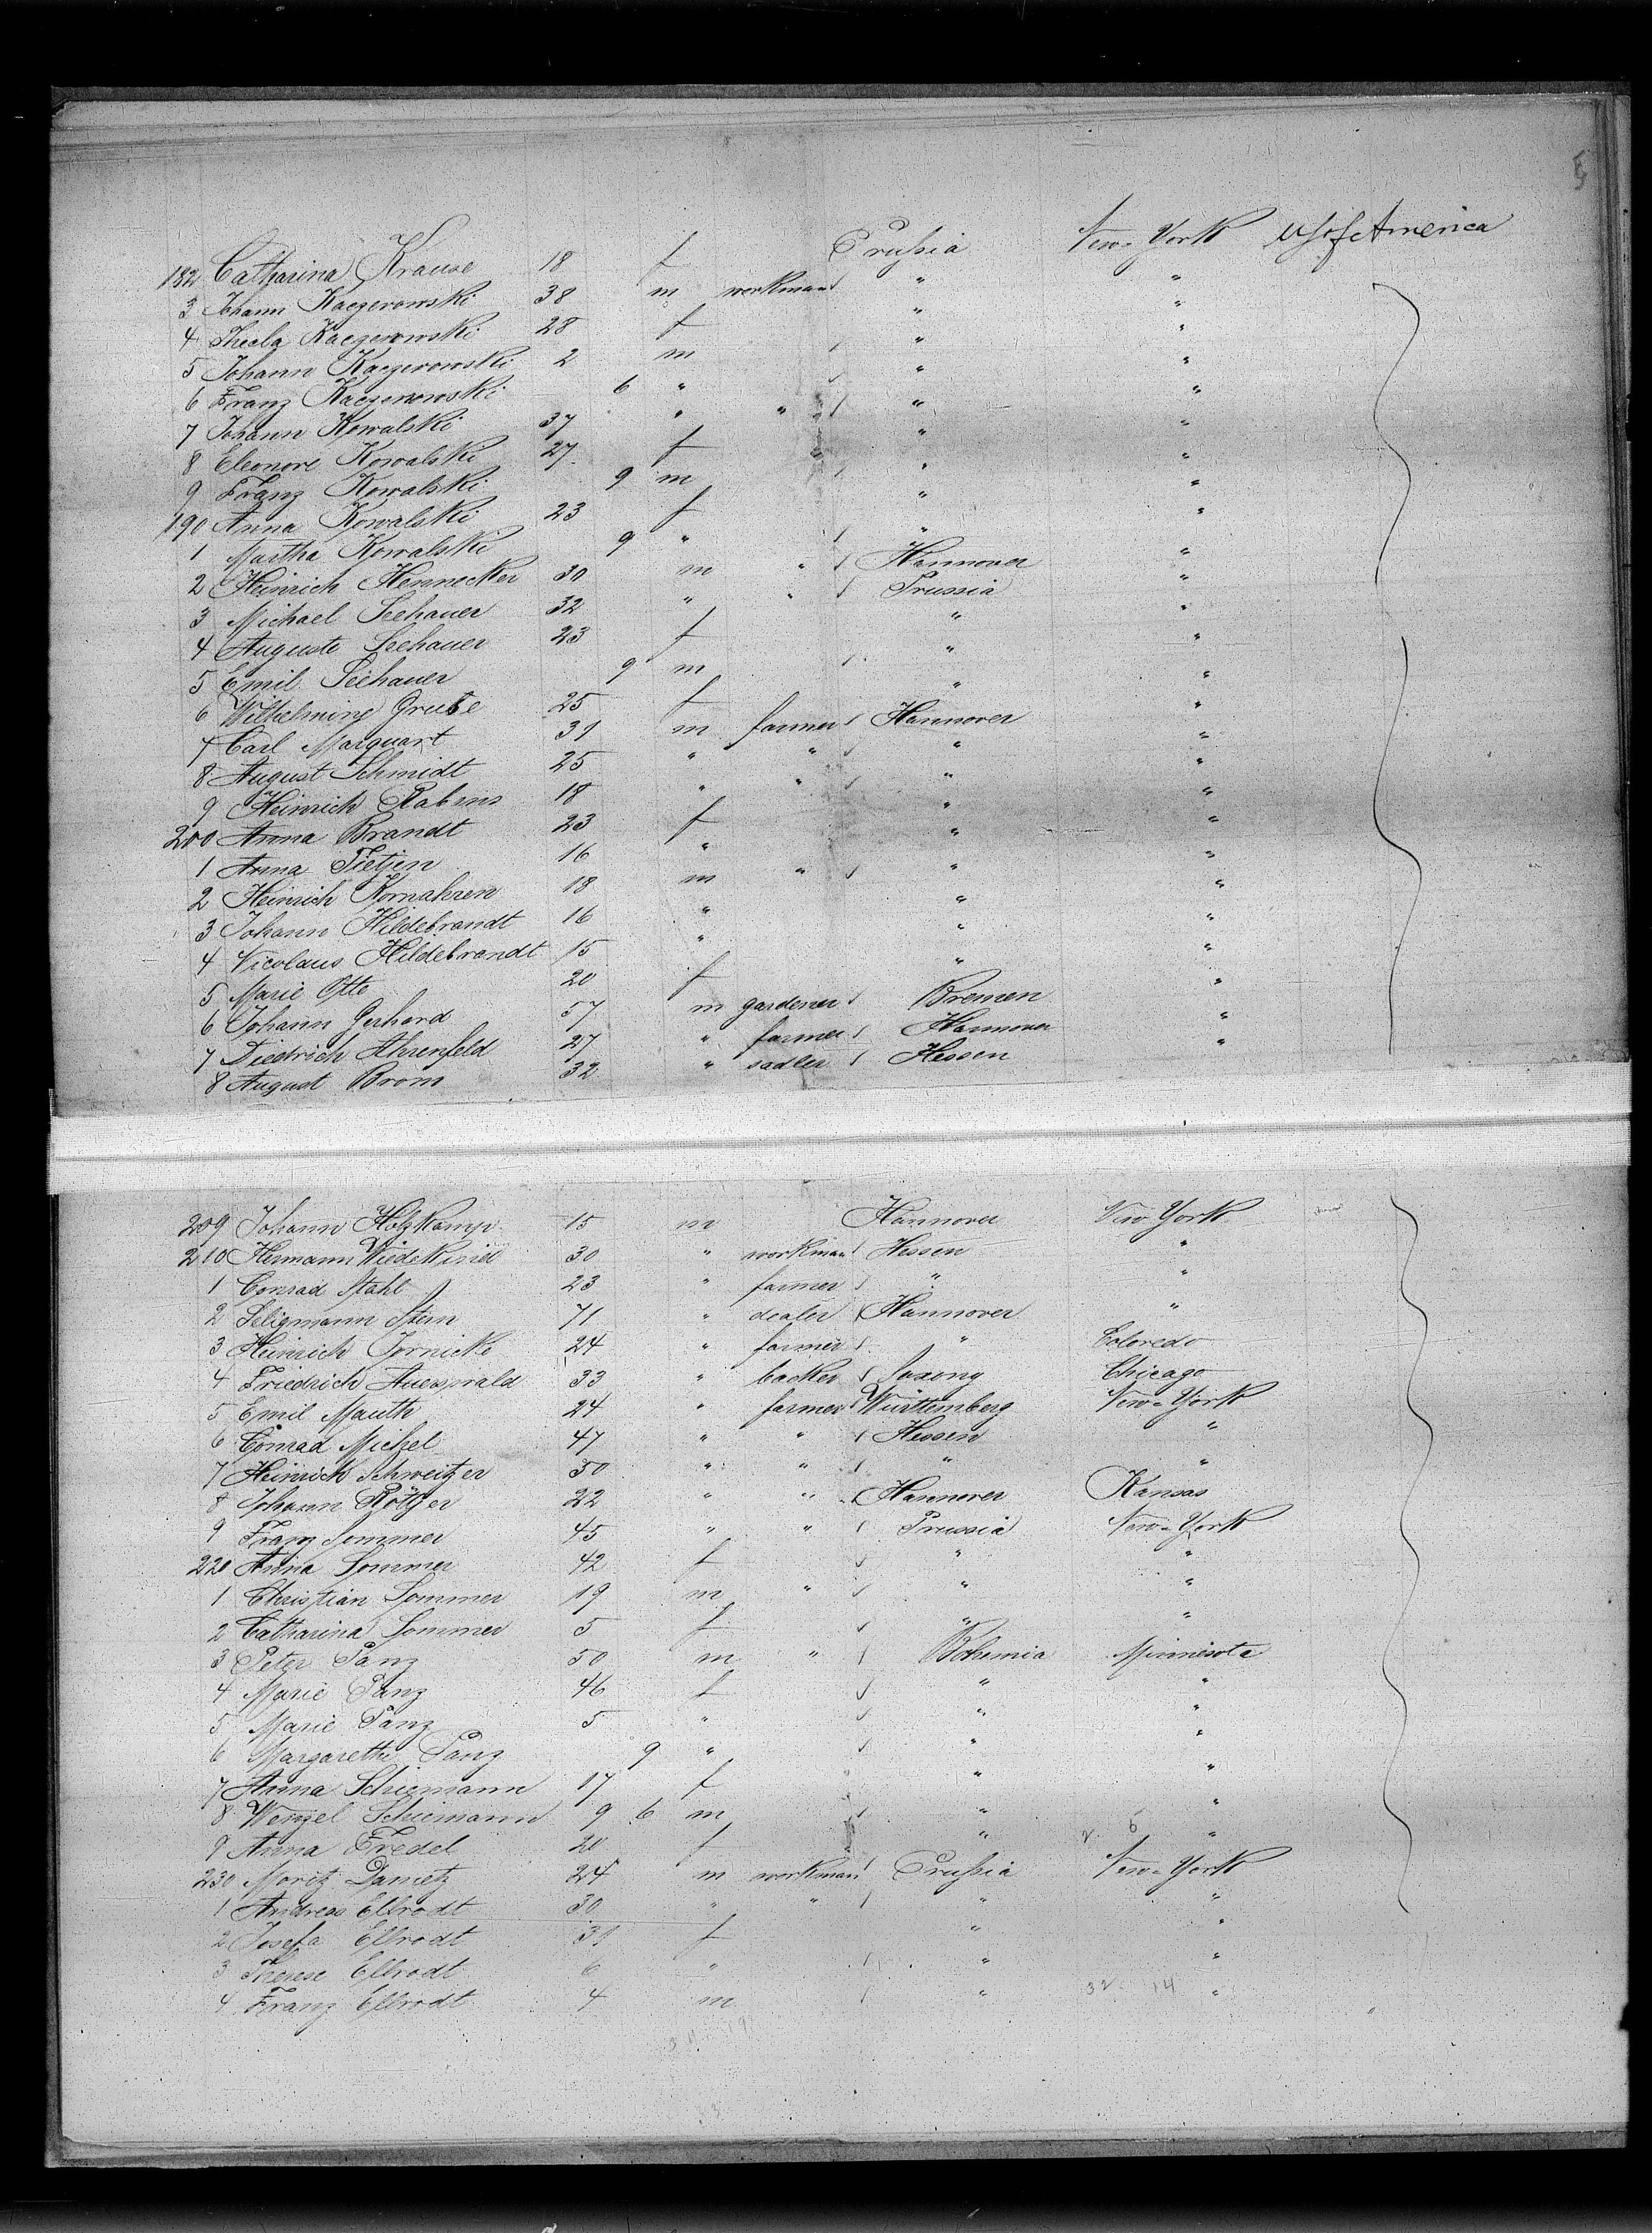 5
182 Catharina Krause 18 f Prussia New-York U S of America
3 Johann Kaczerowski 38 m workman " "
4 Thecla Kaczerowski 28 f " "
5 Johann Kaczerowski 2 m " "
6 Franz Kaczerowski 6 " " "
7 Johann Kowalski 37 " " " "
8 Eleonore Kowalski 27 f " "
9 Franz Kowalski 9 m " "
190 Anna Kowalski 23 f " "
1 Martha Kowalski 9 " " "
2 Heinrich Hennecker 30 m " Hannover "
3 Michael Seehauer 32 " " Prussia "
4 Auguste Seehauer 23 f " "
5 Emil Seehauer 9 m " "
6 Wilhelmine Grube 25 f " "
7 Carl Marquart 31 m farmer Hannover "
8 August Schmidt 25 " " " "
9 Heinrich Rabens 18 " " " "
200 Anna Brandt 23 f " "
1 Anna Tietjen 16 " " "
2 Heinrich Kornahren 18 m " " "
3 Johann Hildebrandt 16 " " "
4 Nicolaus Hildebrandt 15 " " "
5 Marie Otte 20 f " "
6 Johann Gerhard 57 m gardener Bremen "
7 Diedrich Ahrenfeld 27 " farmer Hannover "
8 August Brom 32 " sadler Hessen "
209 Johann Holzkamp 15 m Hannover New York
210 Hermann Wiedekind 30 " workman Hessen "
1 Conrad Stahl 23 " farmer " "
2 Seligmann Stern 71 " dealer Hannover "
3 Heinrich Jornicke 24 " farmer " Coloredo
4 Friedrich Auerswald 33 " backer Saxony Chicago
5 Emil Mauth 24 " farmer Würtemberg New-York
6 Conrad Michel 47 " " Hessen "
7 Heinrich Schweitzer 30 " " " "
8 Johann Röttger 22 " " Hannover Kansas
9 Franz Sommer 45 " " Prussia New-York
220 Anna Sommer 42 f " "
1 Christian Sommer 19 m " " "
2 Catharina Sommer 5 f " "
3 Peter Panz 50 m " Bohemia Minnesota
4 Marie Panz 46 f " "
5 Marie Panz 5 " " "
6 Margarethe Panz 9 " " "
7 Anna Schiemann 17 f " "
8 Wenzel Schiemann 9 6 m " "
9 Anna Fredel 20 f " "
230 Moritz Danietz 24 m workman Prussia New-York
1 Andreas Ellrodt 30 " " " "
2 Josefa Ellrodt 31 f " "
3 Therese Ellrodt 6 " " "
4 Franz Ellrodt 4 m " "
32 14